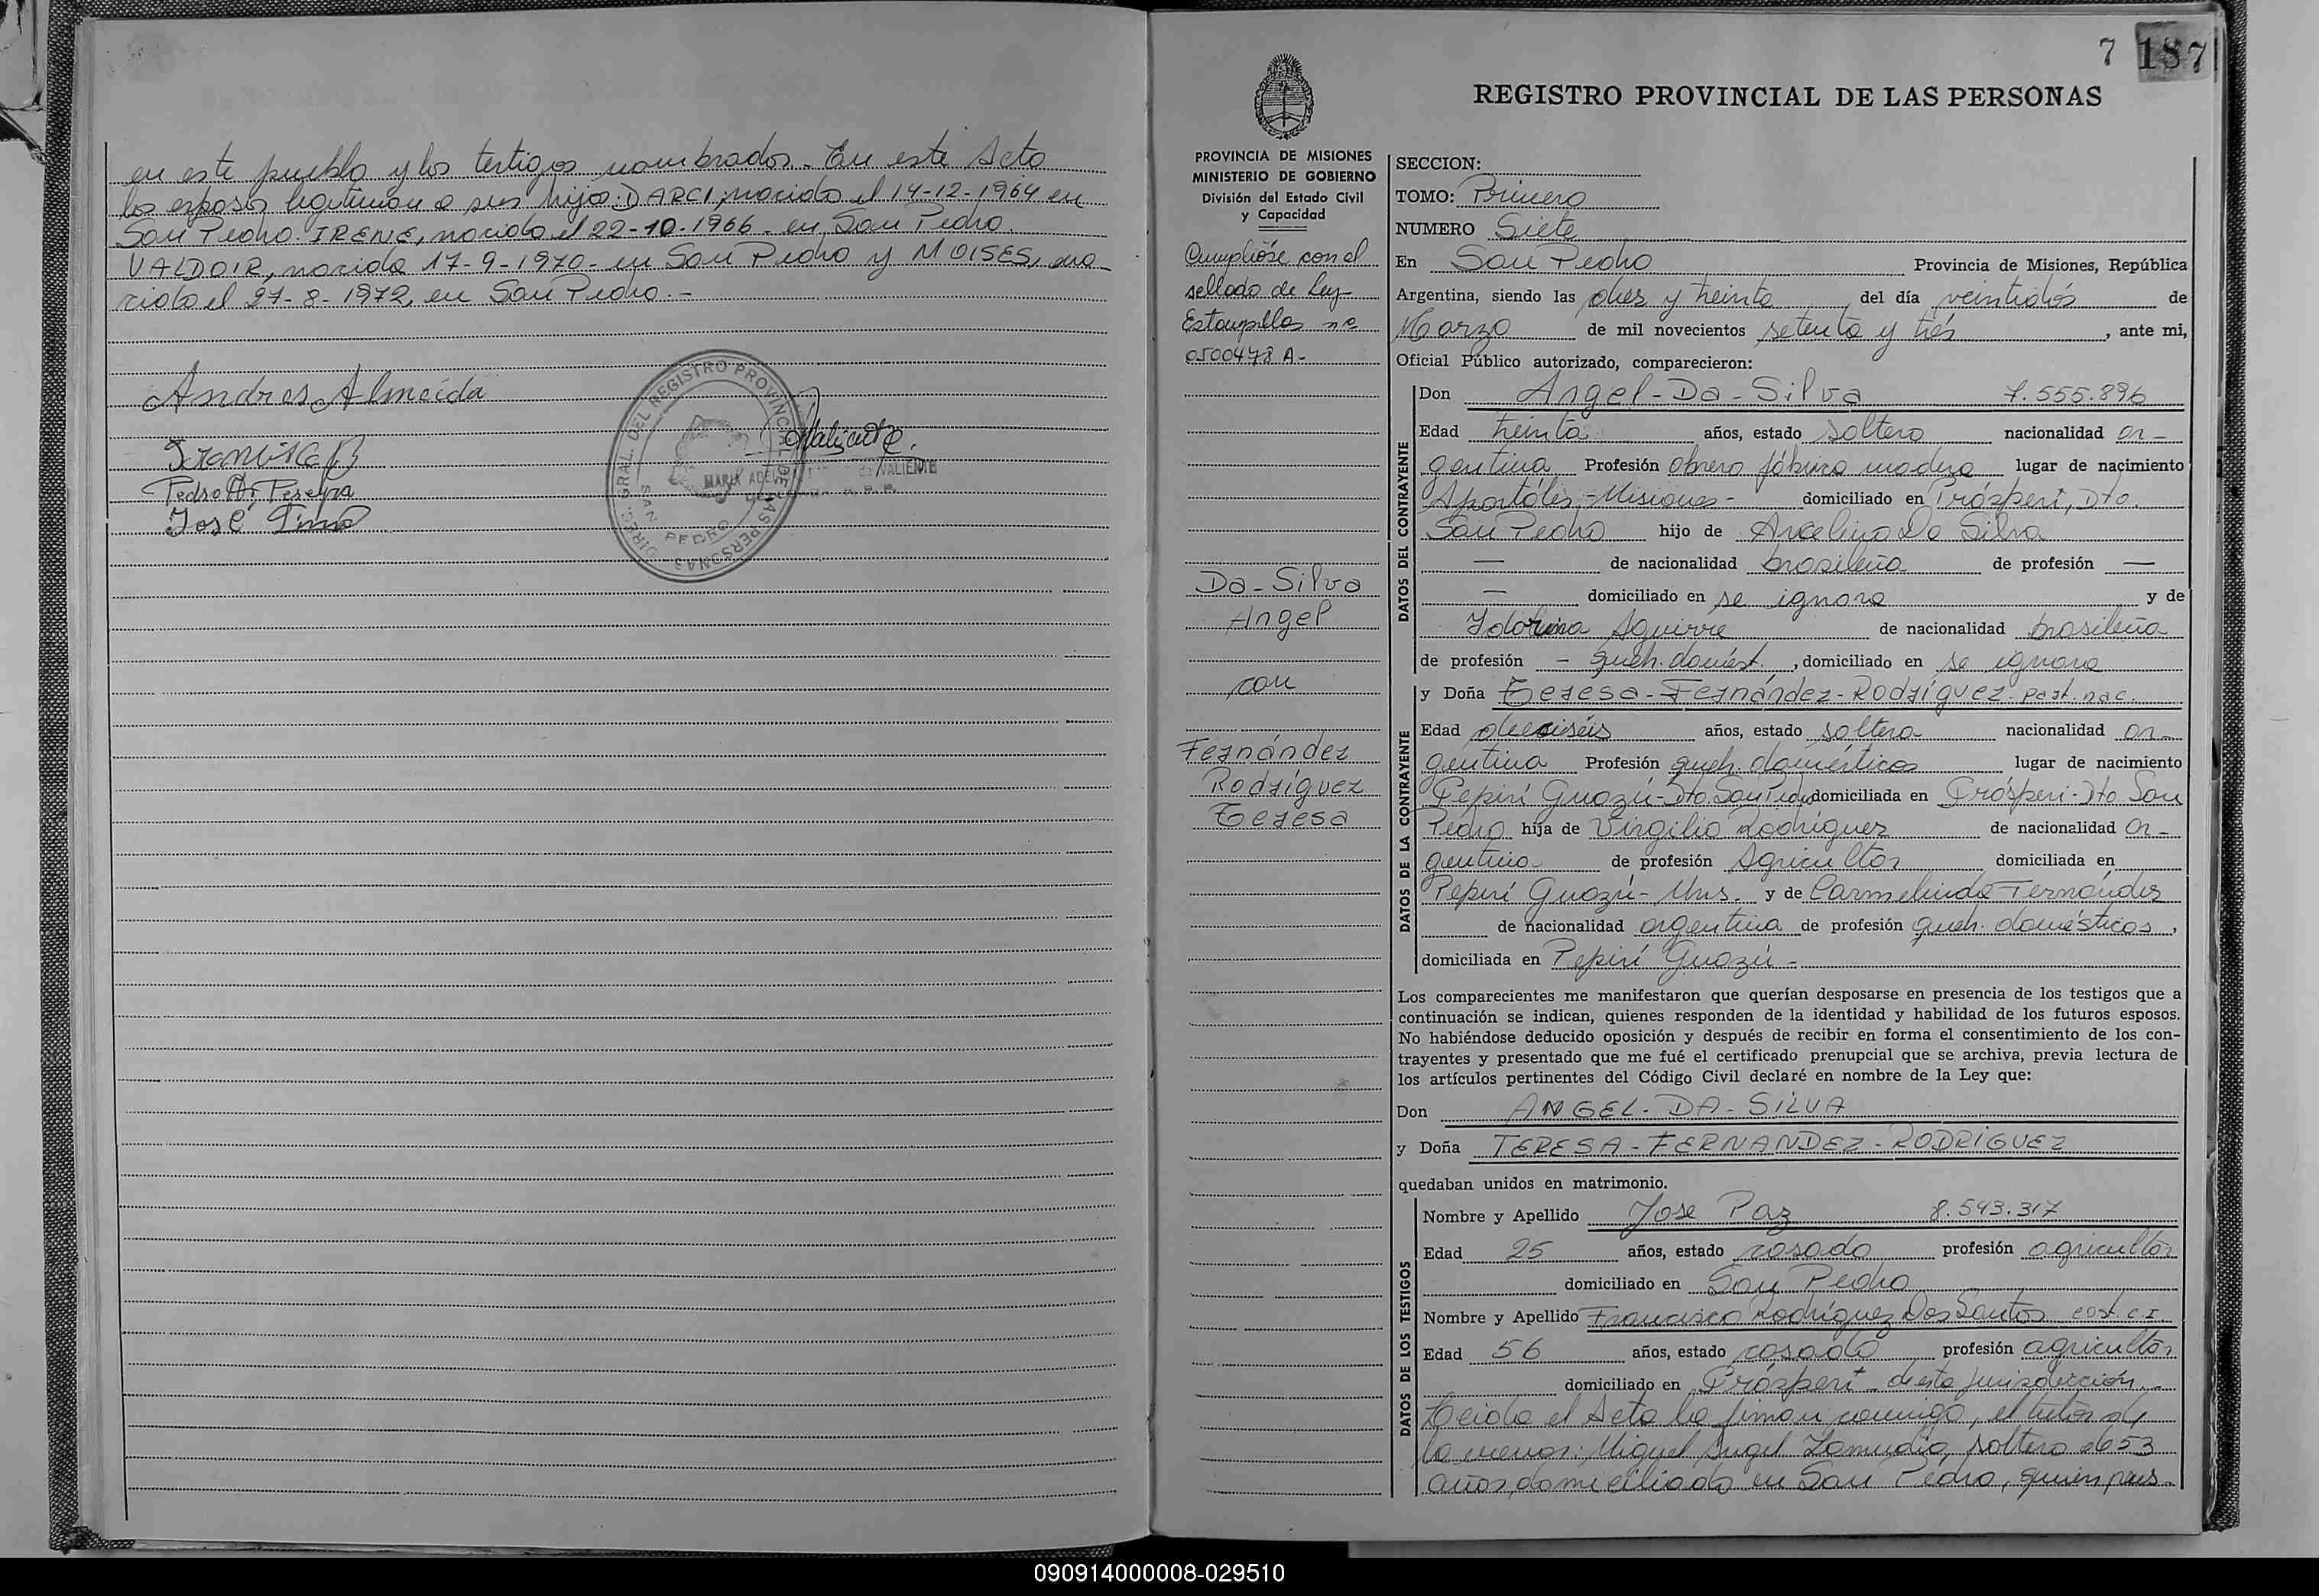 en este pueblo y los testigos nombrados. En este Acto
los esposos legitiman a sus hijos: DARCI, nacido el 14-12-1964 en
San Pedro. IRENE, nacida el 22-10-1966 - en San Pedro.
VALDOIR, nacido 17-9-1970- en San Pedro y MOISES, na-
cido el 27-8-1972, en San Pedro.-
Andres Almeida
Pedro Pereyra
José
DIREC. GRAL. DEL REGISTRO PROVINCIAL DE LAS PERSONAS
SAN PEDRO
Valiente
MARIA VALIENTE
7 187
REGISTRO PROVINCIAL DE LAS PERSONAS
PROVINCIA DE MISIONES
MINISTERIO DE GOBIERNO
División del Estado Civil
y Capacidad
Cumplióse con el
sellado de ley
Estampillas nº
0500478 A-
Da-Silva
Angel
con
Fernández
Rodríguez
Teresa
SECCION:
TOMO: Primero
NUMERO Siete
En San Pedro Provincia de Misiones, República
Argentina, siendo las diez y treinta del día veintidós de
Marzo de mil novecientos setenta y trés, ante mi,
Oficial Público autorizado, comparecieron:
DATOS DEL CONTRAYENTE
Don Angel-Da-Silva 7.555.896
Edad treinta años, estado soltero nacionalidad ar-
gentina Profesión obrero fábrica madera lugar de nacimiento
Apóstoles-Misiones- domiciliado en Prósperi, Dto.
San Pedro hijo de Arcelino Da Silva
— de nacionalidad brasileña de profesión —
— domiciliado en se ignora y de
Idorina Aguirre de nacionalidad brasileña
de profesión - queh. domést., domiciliado en se ignora
y Doña Teresa-Fernández-Rodríguez- part. nac.
DATOS DE LA CONTRAYENTE
Edad dieciséis años, estado soltera nacionalidad ar-
gentina Profesión queh. domésticos lugar de nacimiento
Pepirí Guazú-Dto. San Pedro domiciliada en Prósperi-Dto San
Pedro hija de Virgilio Rodríguez de nacionalidad ar-
gentina de profesión Agricultor domiciliada en
Pepirí Guazú- Mnes. y de Carmelinda Fernández
de nacionalidad argentina de profesión queh. domésticos,
domiciliada en Pepirí Guazú-
Los comparecientes me manifestaron que querían desposarse en presencia de los testigos que a
continuación se indican, quienes responden de la identidad y habilidad de los futuros esposos.
No habiéndose deducido oposición y después de recibir en forma el consentimiento de los con-
trayentes y presentado que me fué el certificado prenupcial que se archiva, previa lectura de
los artículos pertinentes del Código Civil declaré en nombre de la Ley que:
Don ANGEL-DA-SILVA
y Doña TERESA-FERNANDEZ-RODRIGUEZ
quedaban unidos en matrimonio.
DATOS DE LOS TESTIGOS
Nombre y Apellido Jose Paz 8.543.317
Edad 25 años, estado casado profesión agricultor
domiciliado en San Pedro
Nombre y Apellido Francisco Rodríguez Dos Santos cost. C.I.
Edad 56 años, estado casado profesión agricultor
domiciliado en Prósperi- de esta jurisdicción.-
Leida el Acta la firman conmigo, el tutor de
la menor: Miguel Angel Zamudio, soltero de 53
años, domiciliado en San Pedro, quien pres-
090914000008-029510